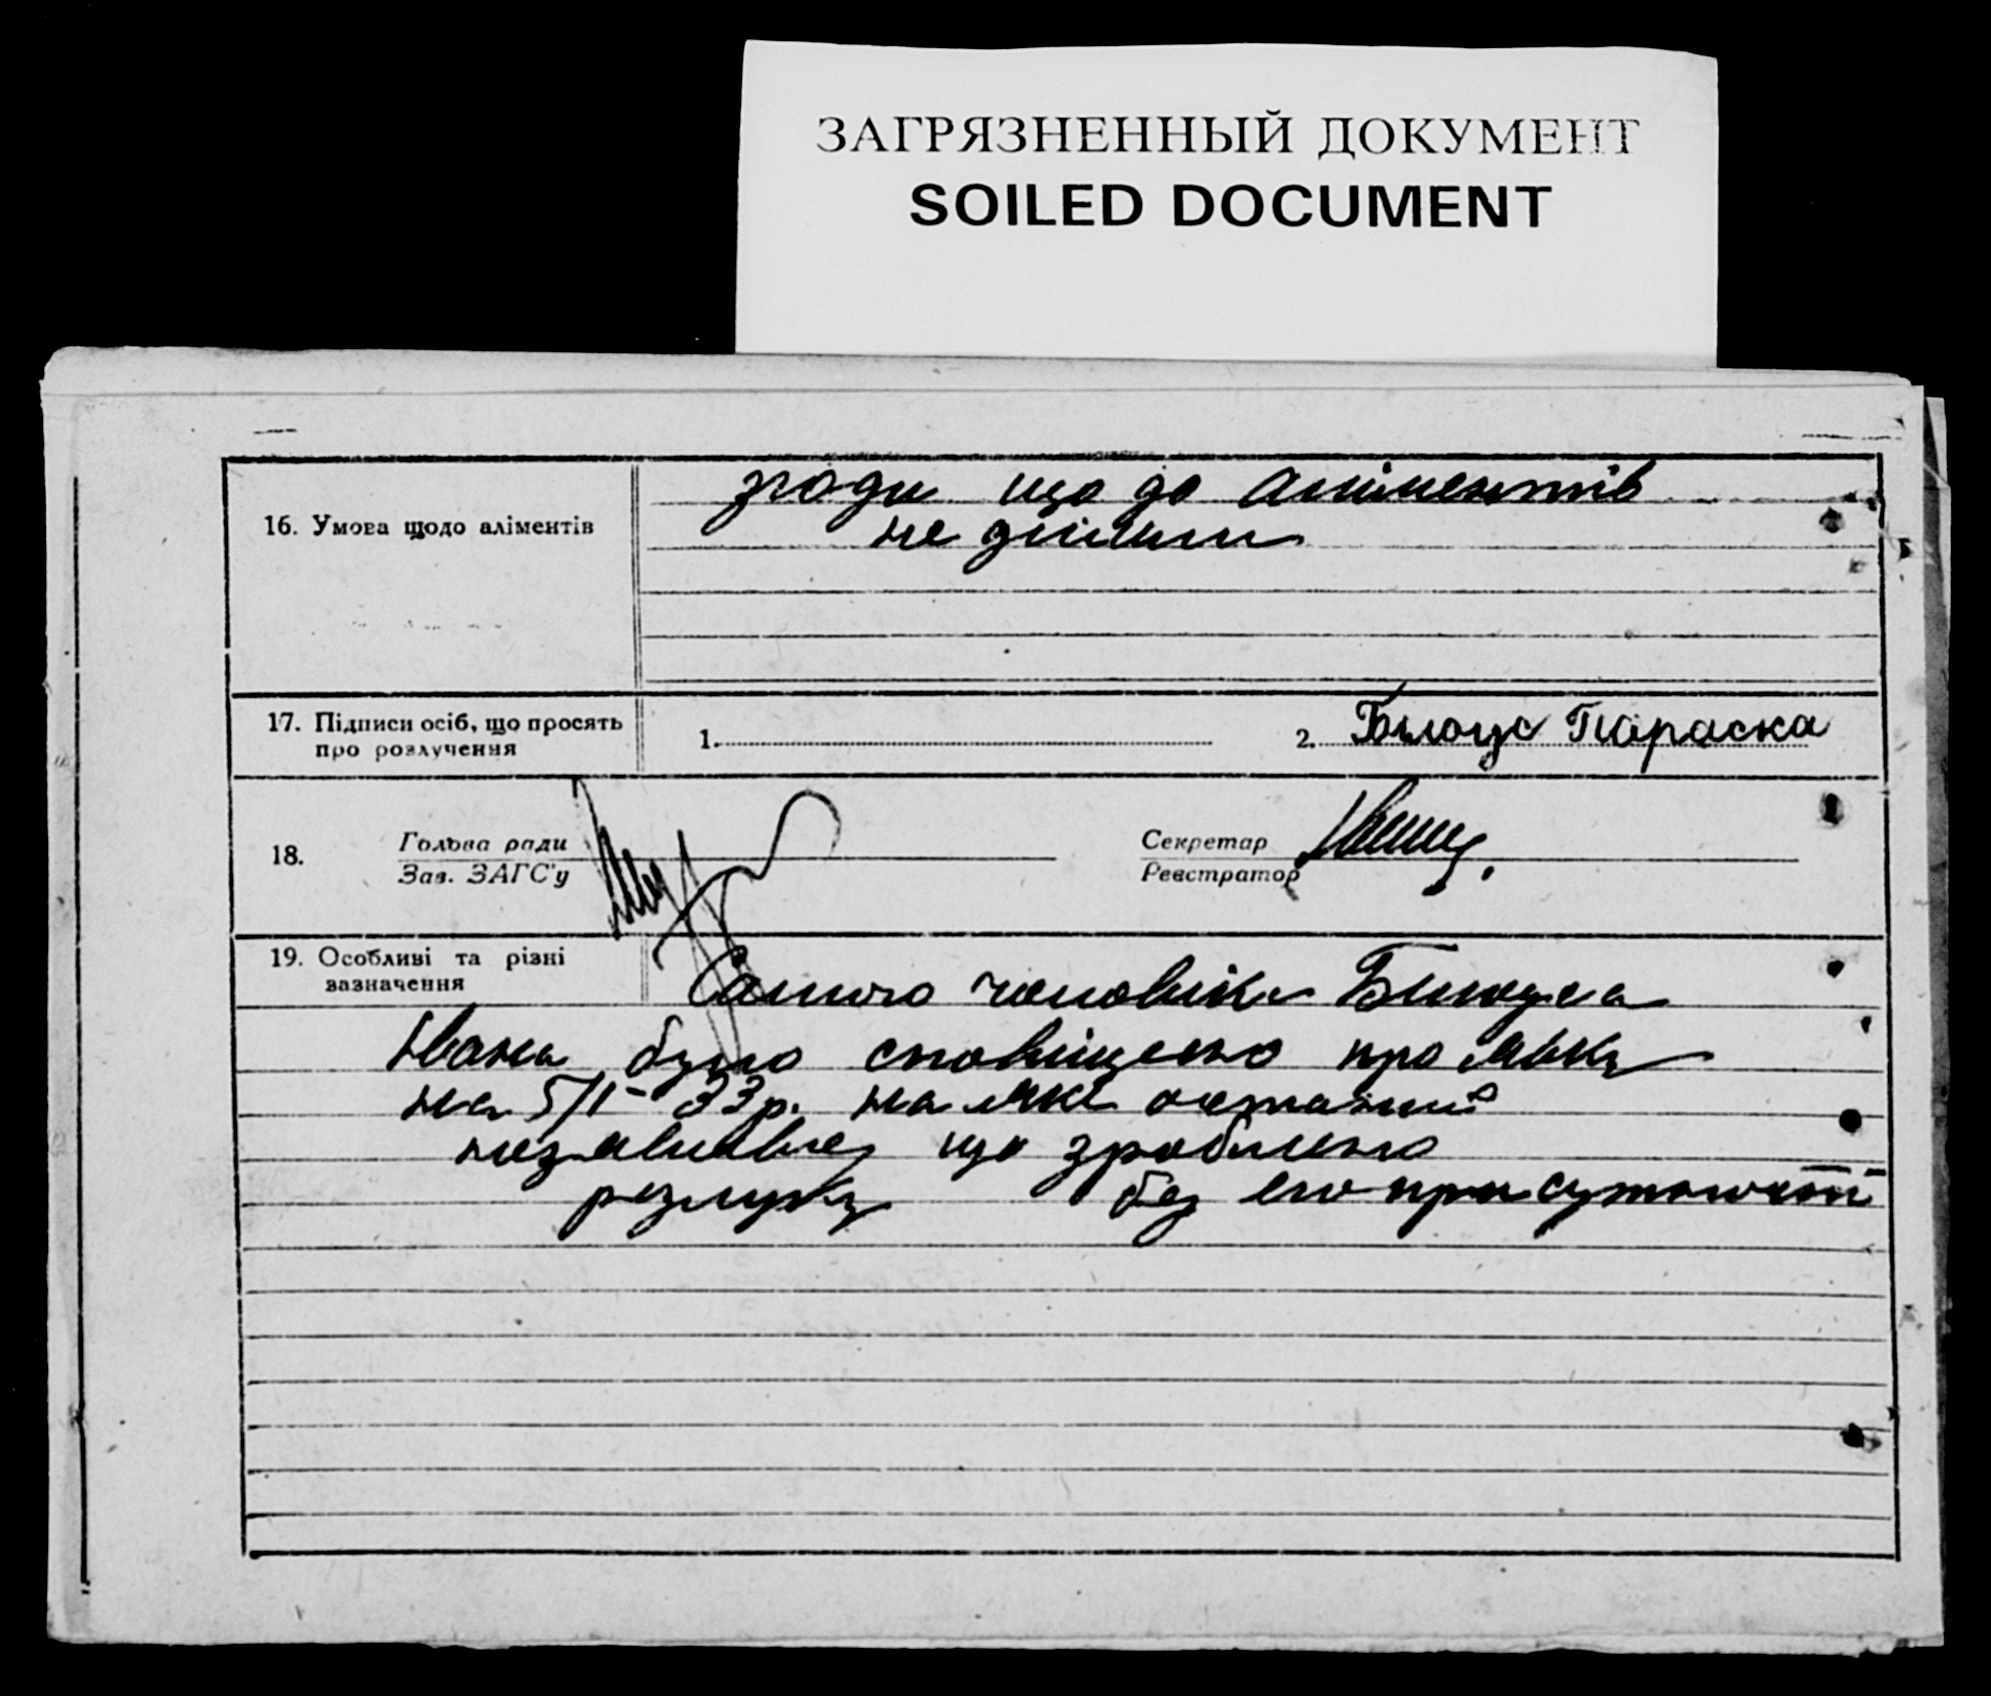 ЗАГРЯЗНЕННЫЙ ДОКУМЕНТ
SOILED DOCUMENT
16. Умова щодо аліментів
згоди що до аліментів
не дійшли
17. Підписи осіб, що просять
про розлучення
1.
2. Білоус Параска
18.
Голова ради
Зав. ЗАГС'у
Секретар
Реєстратор
19. Особливі та різні
зазначення
Самого чоловіка Білоуса
Івана було сповіщено про явку
на 5/I-33р. на яке останній
незявився що зроблено
розлуку без его присутності